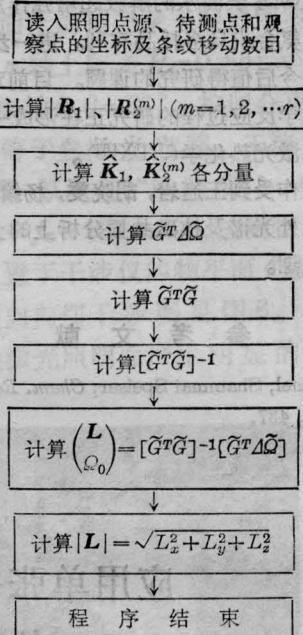 读入照明点源、待测点和观
察点的坐标及条纹移动数目
计算|R₁|、|R₂⁽ᵐ⁾|(m=1,2,…r)
计算 K̂₁, K̂₂⁽ᵐ⁾ 各分量
计算 G̃ᵀΔΩ̃
计算 G̃ᵀG̃
计算[G̃ᵀG̃]⁻¹
计算(L Ω₀)=[G̃ᵀG̃]⁻¹[G̃ᵀΔΩ̃]
计算|L|=√L²ₓ+L²ᵧ+L²_z
程 序 结 束